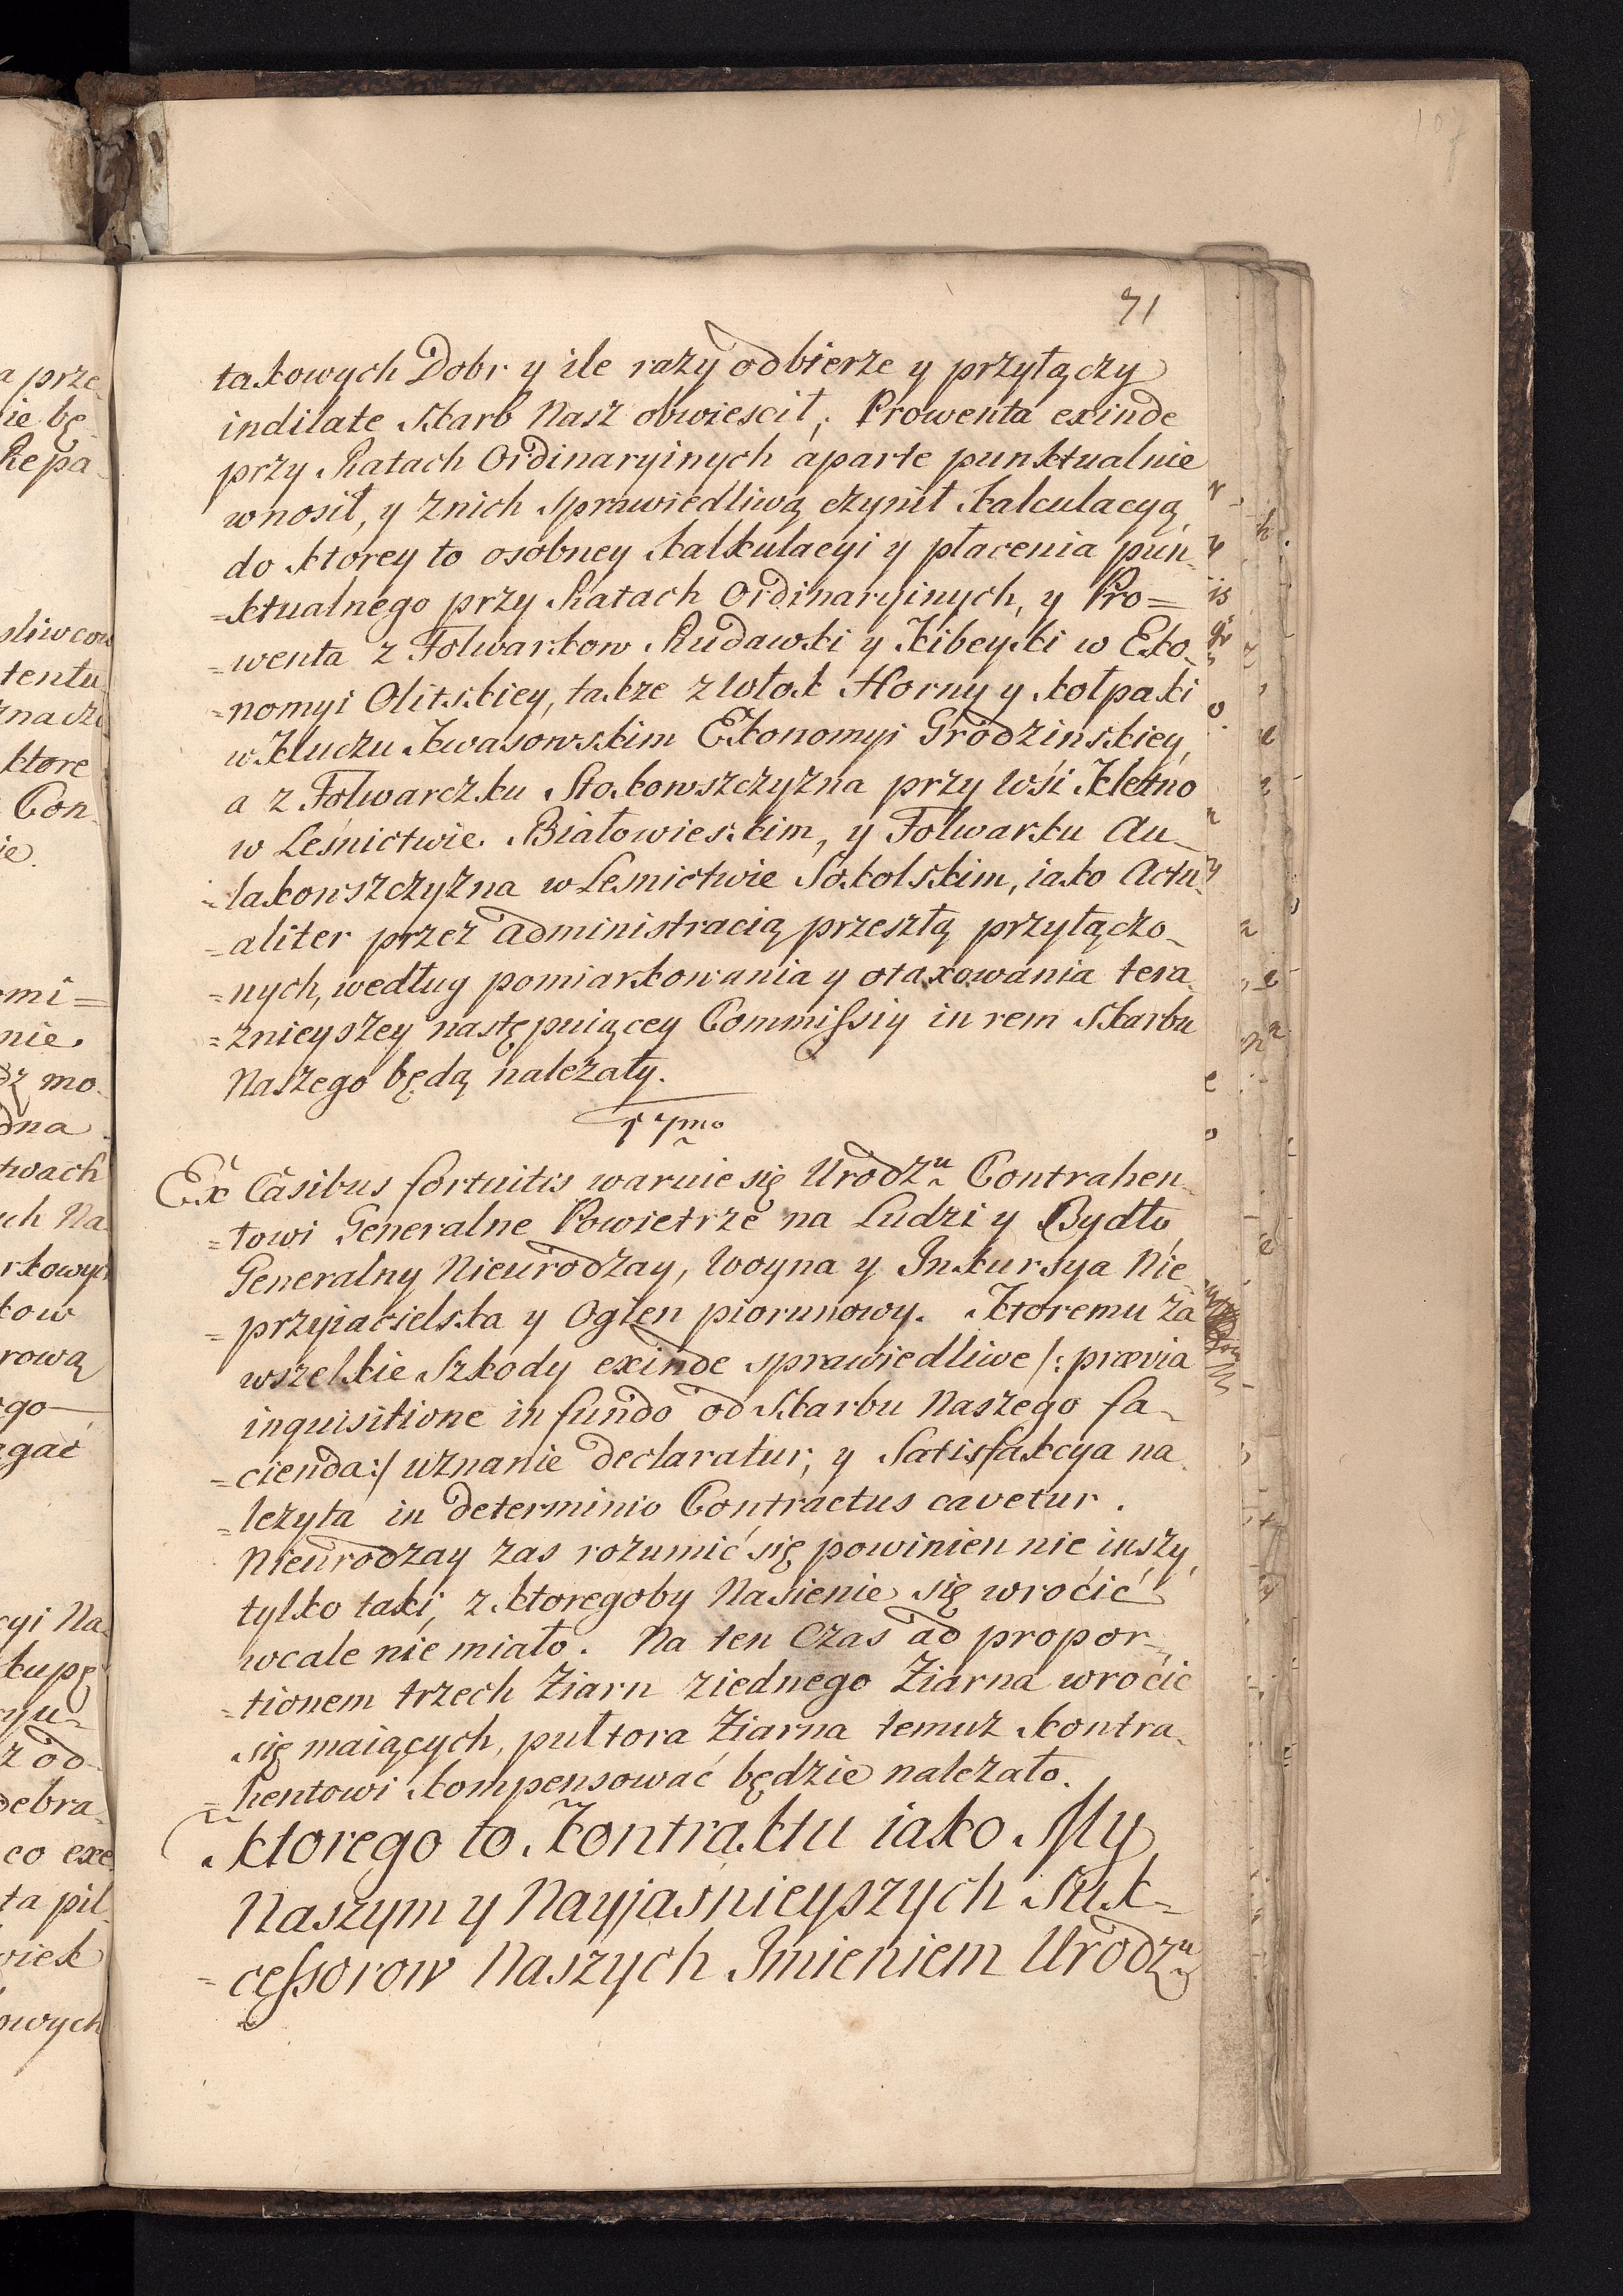 71
takowych Dobr y ile razy odbierze y przyłączy
indilate Skarb Nasz obwiescił, Prowenta exinde
przy Ratach Ordinaryinych aparte punktualnie
wnosił, y z nich sprawiedliwą czynił kalculacyą,
do ktorey to osobney kalkulacyi y płacenia pun-
=ktualnego przy Ratach Ordinaryinych, y Pro=
=wenta z Folwarkow Rudawki y Kibeyki w Eko-
=nomyi Olitskiey, takze z Włok Horny y kołpaki
w Kluczu Kwasowskim Ekonomyi Grodzinskiey,
a z Folwarczku Stokowszczyzna przy Wśi Kletno
w Leśnictwie Białowieskim, y Folwarku Au-
=lakowszczyzna w Lesnictwie Sokolskim, iako Actu-
=aliter przez administracią przeszłą przyłączo-
=nych, według pomiarkowania y otaxowania tera-
=znieyszey następuiącey Commissiy in rem Skarbu
Naszego będą należały.
17mo
Ex Casibus fortuitis waruie się Urodzu Contrahen-
=towi Generalne Powietrze na Ludzi y Bydło,
Generalny Nieurodzay, Woyna y Inkursya Nie-
=przyiacielska y Ogien piorunowy. Ktoremu za
wszelkie Szkody exinde sprawiedliwe /: prævia
inquisitione in fundo od Skarbu Naszego fa-
=cienda:/ uznanie declaratur, y Satisfakcya na-
=leżyta in determinio Contractus cavetur.
Nieurodzay zas rozumić się powinien nie inszy,
tylko taki, z ktoregoby Nasienie się wrocić
wcale nie miało. Na ten Czas ad propor-
=tionem trzech Ziarn z iednego Ziarna wrocic
się maiących, pułtora Ziarna temuż kontra-
=hentowi kompensować będzie należało.
ktorego to Kontraktu iako My
Naszym y Nayjasnieyszych Suk-
=cessorow Naszych Imieniem Urodzu